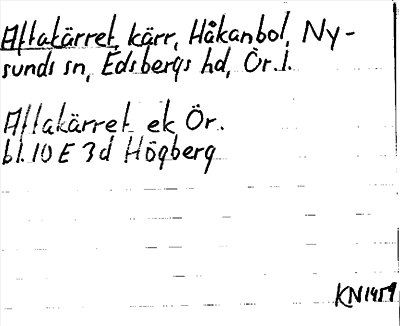 Aftakärret, kärr, Håkanbol, Ny-
sunds sn, Edsbergs hd, Ör. l.
Aftakärret ek Ör.
bl. 10 E 3d Högberg
KN1959